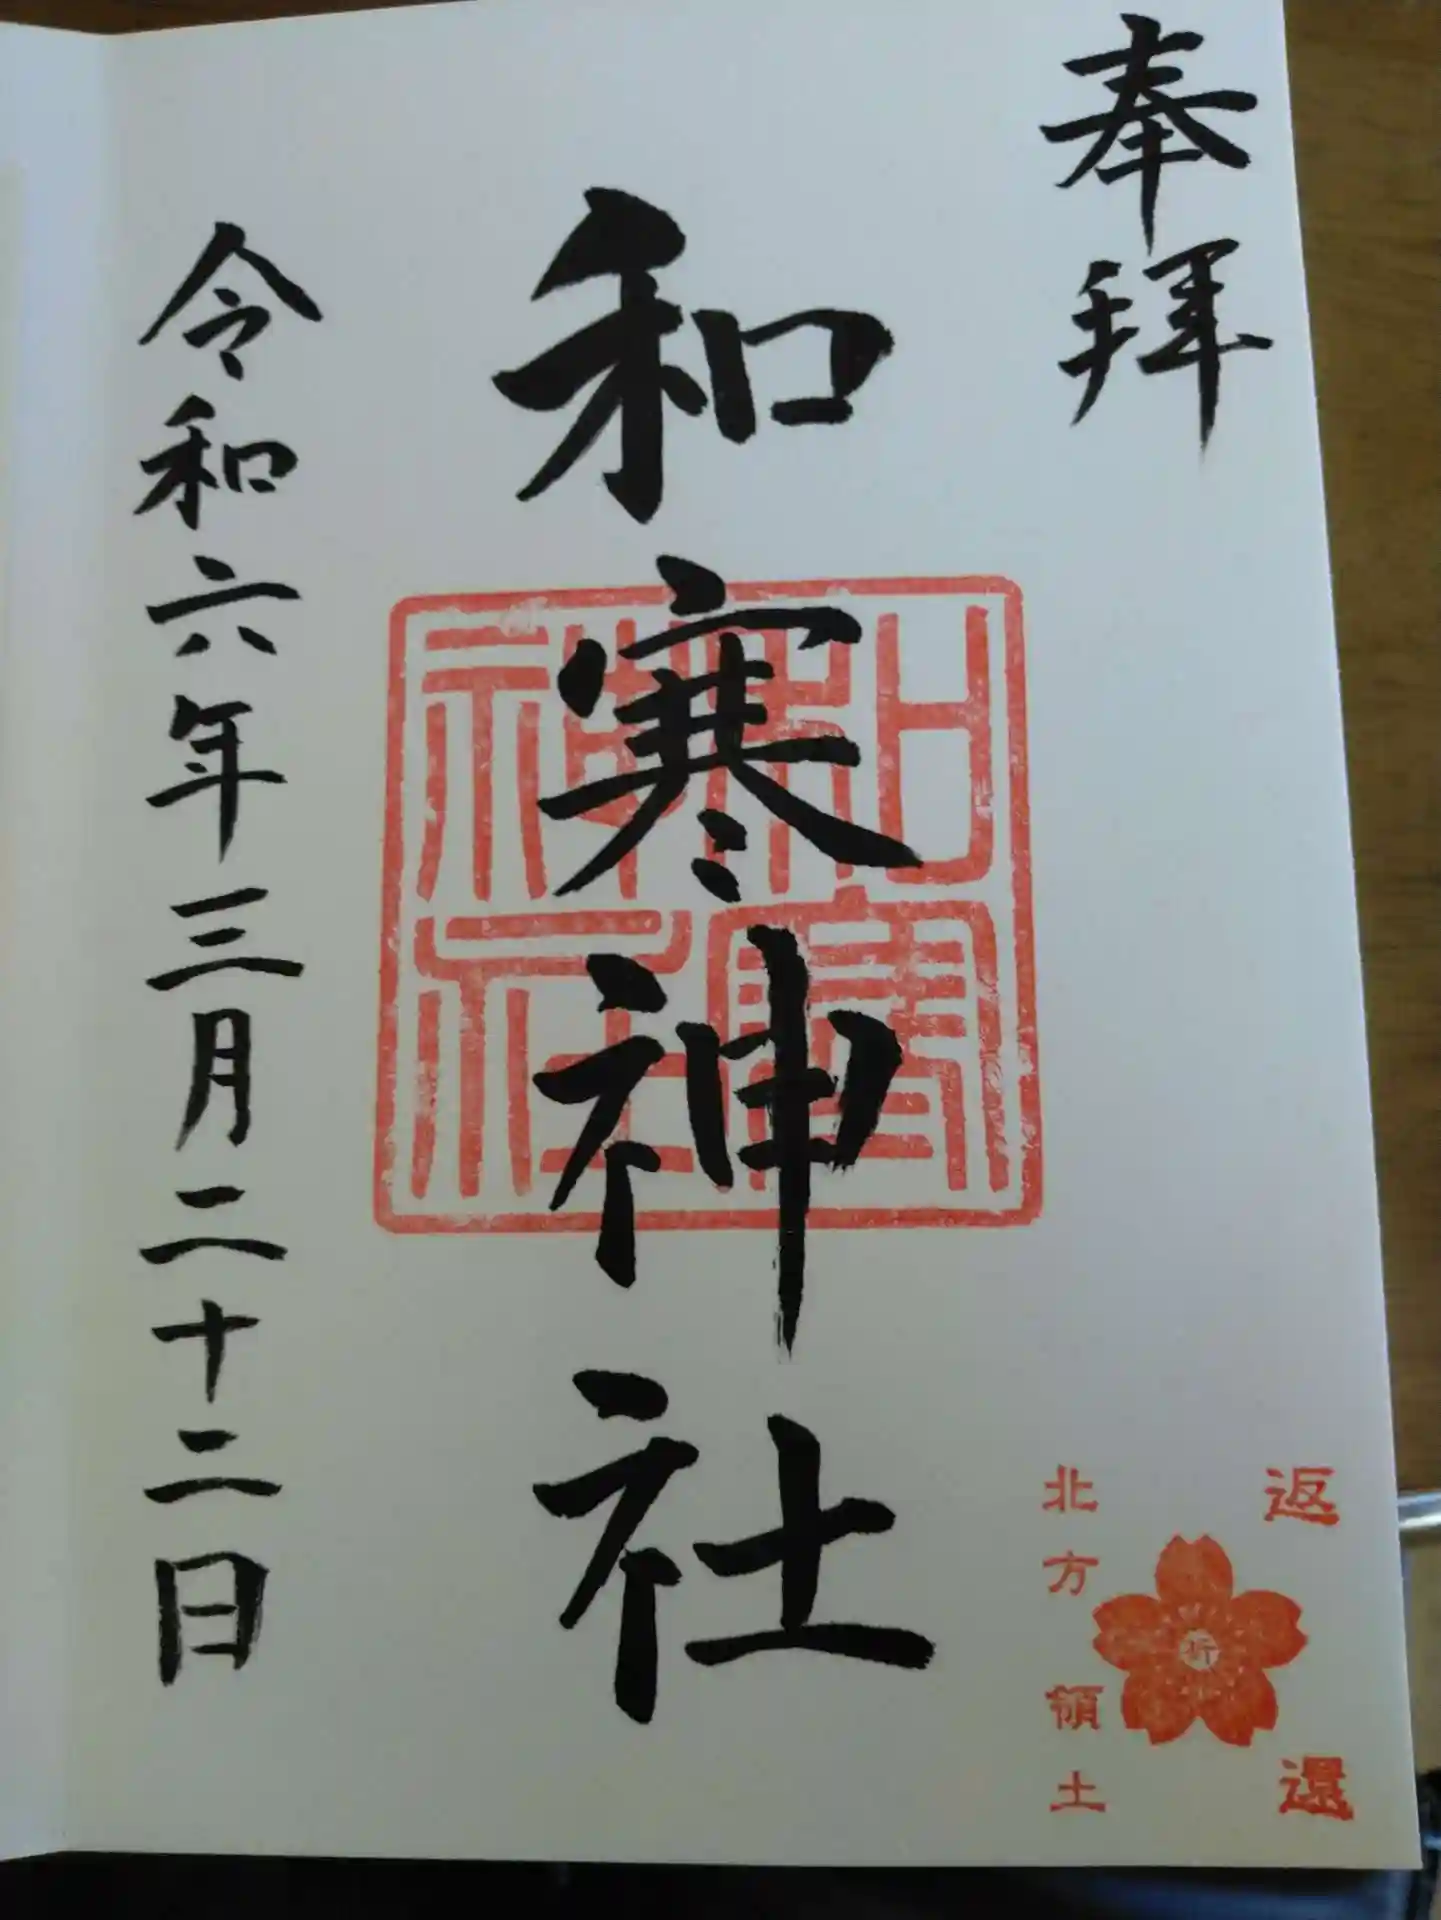 奉拝
和寒神社
和寒神社
令和六年三月二十二日
返還
祈
北方領土